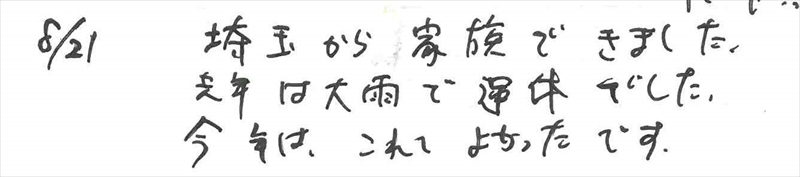 8/21 埼玉から家族できました。
去年は大雨で運休でした。
今年は、これてよかったです。